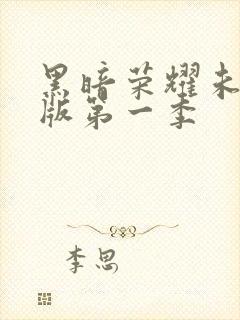 黑暗荣耀未
版第一季
李思